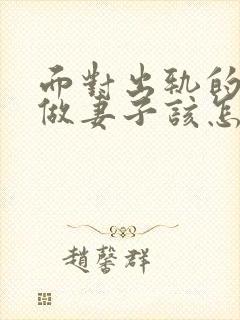 而對出軌的
做妻子該怎
趙馨群